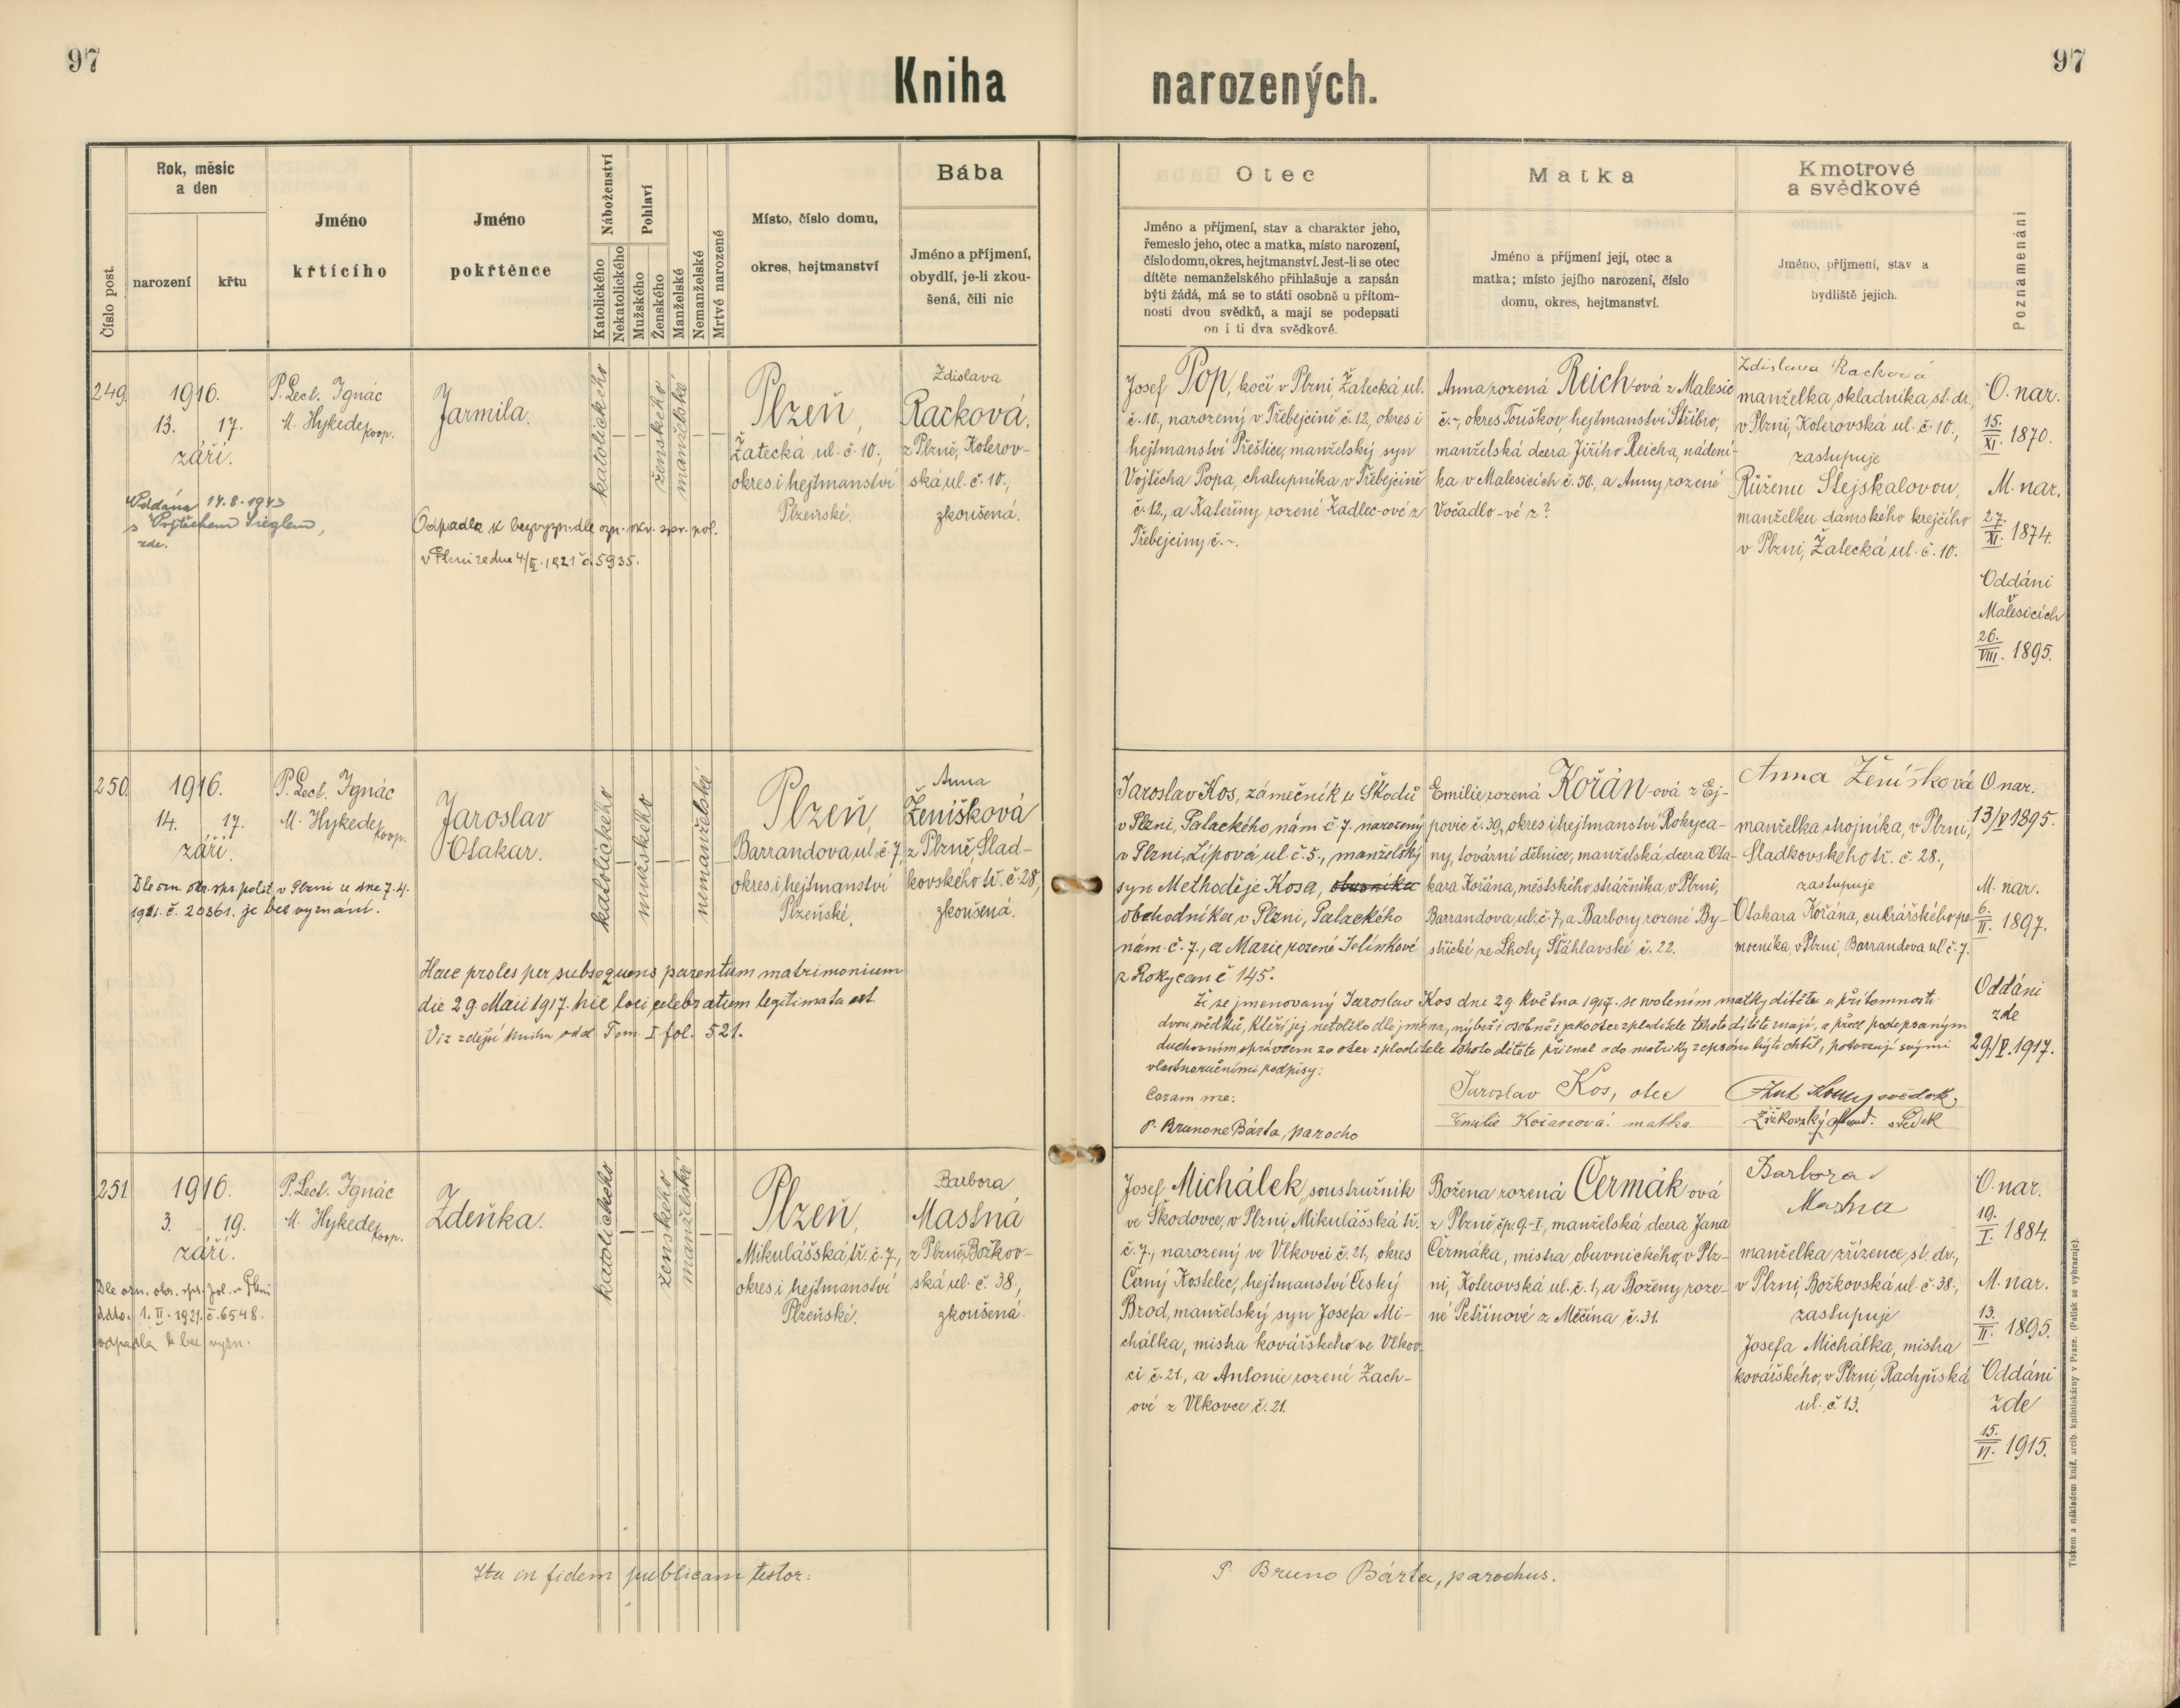 97
97
Kniha narozených.
Číslo post.
Rok, měsíc
a den
narození
křtu
Jméno
křtícího
Jméno
pokřtěnce
Náboženství
Katolického
Nekatolického
Pohlaví
Mužského
Ženského
Manželské
Nemanželské
Mrtvě narozené
Místo, číslo domu,
okres, hejtmanství
Bába
Jméno a příjmení,
obydlí, je-li zkou-
šená, čili nic
Otec
Jméno a příjmení, stav a charakter jeho,
řemeslo jeho, otec a matka, místo narození,
číslo domu, okres, hejtmanství. Jest-li se otec
dítěte nemanželského přihlašuje a zapsán
býti žádá, má se to státi osobně u přítom-
nosti dvou svědků, a mají se podepsati
on i ti dva svědkové.
Matka
Jméno a příjmení její, otec a
matka; místo jejího narození, číslo
domu, okres, hejtmanství.
Kmotrové
a svědkové
Jméno, příjmení, stav a
bydliště jejich.
Poznamenání
249.
1916.
13. 17.
září.
Oddána 14.8.1943
s Vojtěchem Sieglem,
zde.
P. Lect. Ignác
M. Hykede, koop.
Jarmila.
Odpadla k bezvyzn. dle ozn. okr. spr. pol.
v Plzni ze dne 4/II. 1921 č. 5935.
katolického
ženského
manželské
Plzeň,
Žatecká ul. č. 10.,
okres i hejtmanství
Plzeňské.
Zdislava
Racková,
z Plzně, Koterov-
ská ul. č. 10.,
zkoušená.
Josef Pop, kočí v Plzni, Žatecká ul.
č. 10., narozený v Třebejcině č. 12, okres i
hejtmanství Přeštice, manželský syn
Vojtěcha Popa, chalupníka v Třebejcině
č. 12., a Kateřiny rozené Kadlec-ové z
Třebejciny č. ~.
Anna rozená Reich-ová z Malesic
č. ~, okres Touškov, hejtmanství Stříbro,
manželská dcera Jiřího Reicha, nádení-
ka v Malesicích č. 50., a Anny rozené
Vočadlo-vé z ?
Zdislava Racková
manželka skladníka st. dr.,
v Plzni, Koterovská ul. č. 10.,
zastupuje
Růženu Stejskalovou,
manželku dámského krejčího
v Plzni, Žatecká ul. č. 10.
O. nar.
15./XI. 1870.
M. nar.
27./XI. 1874.
Oddáni
v
Malesicích
26./VIII. 1895.
250.
1916.
14. 17.
září.
Dle ozn. okr. spr. polit. v Plzni ze dne 7.4.
1921. č. 20361. je bez vyznání.
P. Lect. Ignác
M. Hykede, koop.
Jaroslav
Otakar.
Haec proles per subsequens parentum matrimonium
die 29. Maii 1917. hic loci celebratum legitimata est.
Viz zdejší kniha odd. Tom. I. fol. 521.
katolického
mužského
nemanželské
Plzeň,
Barrandova ul. č. 7,
okres i hejtmanství
Plzeňské.
Anna
Ženíšková
z Plzně, Slad-
kovského tř. č. 28,
zkoušená.
Jaroslav Kos, zámečník u Škodů
v Plzni, Palackého nám č. 7. narozený
v Plzni, Lípová ul. č. 5., manželský
syn Methoděje Kosa, obuvníka
obchodníka v Plzni, Palackého
nám. č. 7., a Marie rozené Jelínkové
z Rokycan č. 145.
Emilie rozená Kořán-ová z Ej-
povic č. 39., okres i hejtmanství Rokyca-
ny, tovární dělnice, manželská dcera Ota-
kara Kořána, městského strážníka, v Plzni,
Barrandova, ul. č. 7., a Barbory rozené By-
střické ze Lhoty Šťáhlavské č. 22.
Anna Ženíšková
manželka strojníka, v Plzni,
Sladkovského tř. č. 28.,
zastupuje
Otakara Kořána, cukrářského po-
mocníka, v Plzni, Barrandova ul. č. 7.
O. nar.
13/V 1895.
M. nar.
6./II. 1897.
Oddáni
zde
29./V. 1917.
Že se jmenovaný Jaroslav Kos dne 29. května 1917. se svolením matky dítěte u přítomnosti
dvou svědků, kteří jej netoliko dle jména, nýbrž i osobně i jako otce zploditele tohoto dítěte znají, a před podepsaným
duchovním správcem za otce zploditele tohoto dítěte přiznal a do matriky zapsán býti chtěl, potvrzují svými
vlastnoručními podpisy:
Coram me:
P. Brunone Bárta, parocho
Jaroslav Kos, otec
Emilie Kořanová. matka
svědek,
Žižkovský svědek
251.
1916.
3. 19.
září.
Dle ozn. okr. spr. pol. v Plzni
ddto. 1. II. 1921. č. 6548.
odpadla k bez vyzn.
P. Lect. Ignác
M. Hykede, koop.
Zdeňka.
katolického
ženského
manželské
Plzeň,
Mikulášská tř. č. 7.,
okres i hejtmanství
Plzeňské.
Barbora
Mastná
z Plzně, Božkov-
ská ul. č. 38.,
zkoušená.
Josef Michálek, soustružník
ve Škodovce, v Plzni, Mikulášská tř.
č. 7., narozený ve Vlkovci č. 21, okres
Černý Kostelec, hejtmanství Český
Brod, manželský syn Josefa Mi-
chálka, mistra kovářského ve Vlkov-
ci č. 21., a Antonie rozené Zach-
ové z Vlkovce č. 21.
Božena rozená Čermák ová
z Plzně, čp. 9-I, manželská dcera Jana
Čermáka, mistra obuvnického, v Plz-
ni, Koterovská ul. č. 1, a Boženy roze-
né Petřínové z Měčína č. 31.
Barbora
Mastna
manželka zřízence st. dr.,
v Plzni, Božkovská ul. č. 38.,
zastupuje
Josefa Michálka, mistra
kovářského, v Plzni, Radyňská
ul. č. 13.
O. nar.
19./I. 1884.
M. nar.
13./II. 1895.
Oddáni
zde
15./VI. 1915.
Ita in fidem publicam testor:
P. Bruno Bárta, parochus.
Tiskem a nákladem kníž. arcib. knihtiskárny v Praze. (Patisk se vyhrazuje).